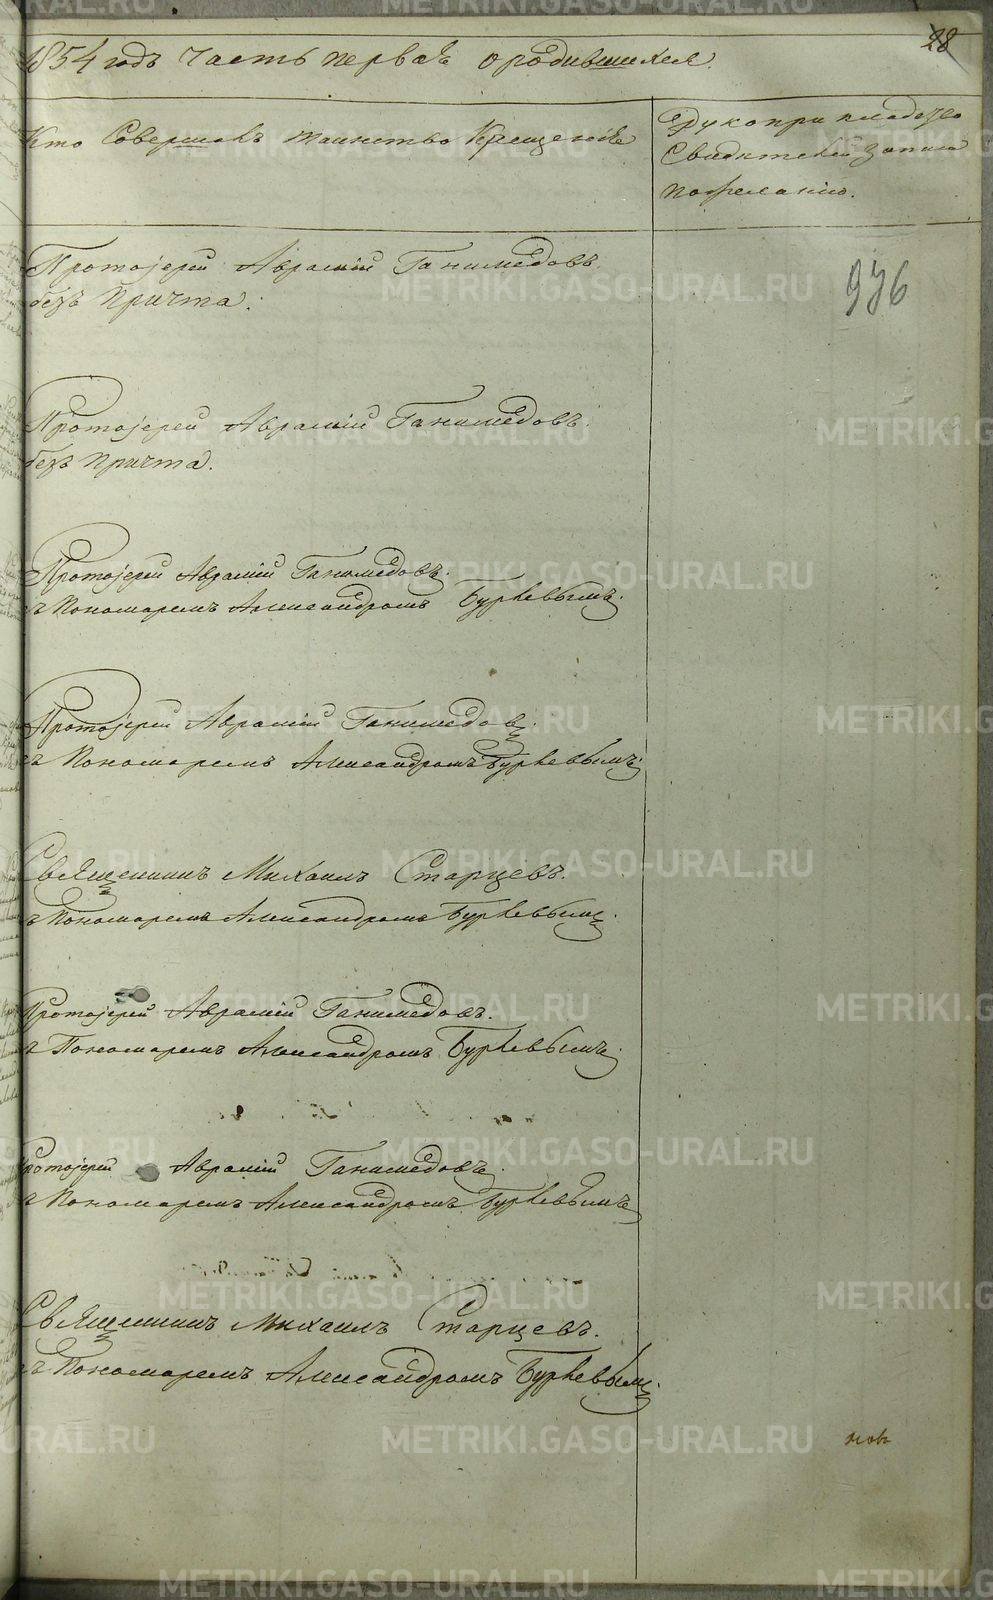 28
1854 годъ часть первая о родившихся.
Кто Совершалъ таинство Крещенія
Рукоприкладство
Свидетелей записи
по желанію.
Протоіерей Авраміи Ганимедовъ.
безъ Причта.
936
Протоіерей Авраміи Ганимедовъ.
безъ Причта.
Протоіерей Авраміи Ганимедовъ.
съ Пономаремъ Александромъ Буркевымъ.
Протоіерей Авраміи Ганимедовъ.
съ Пономаремъ Александромъ Буркевымъ.
Священникъ Михаилъ Старцевъ.
съ Пономаремъ Александромъ Буркевымъ.
Протоіерей Авраміи Ганимедовъ.
съ Пономаремъ Александромъ Буркевымъ.
Протоіерей Авраміи Ганимедовъ.
съ Пономаремъ Александромъ Буркевымъ.
Священникъ Михаилъ Старцевъ.
съ Пономаремъ Александромъ Буркевымъ.
METRIKI.GASO-URAL.RU